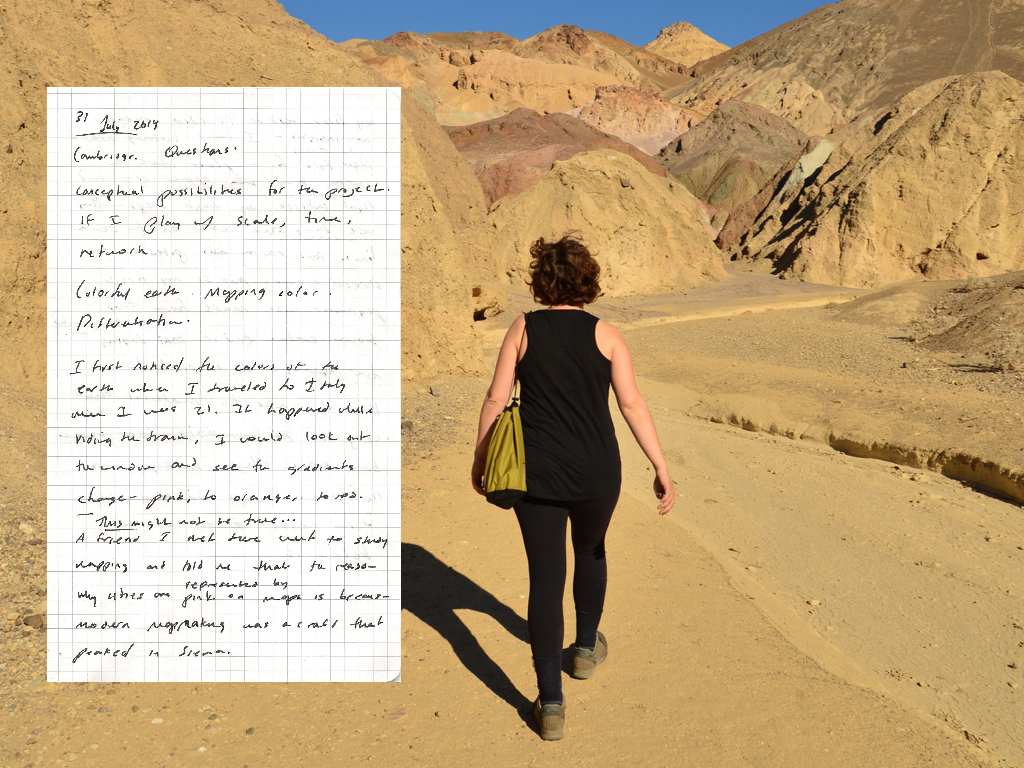 31 July 2014
Cambridge. Questions.
conceptual possibilities for the project.
If I play w/ scale, time,
network
Colorful earth. Mapping color.
Differentiation.
I first noticed the colors of the
earth when I traveled to Italy
when I was 21. It happened while
riding the train, I would look out
the window and see the gradients
change – pink, to orange, to red.
This might not be true...
A friend I met there went to study
mapping and told me that the reason
represented by
why cities are pink on maps is because
modern mapmaking was a craft that
peaked in Siena.